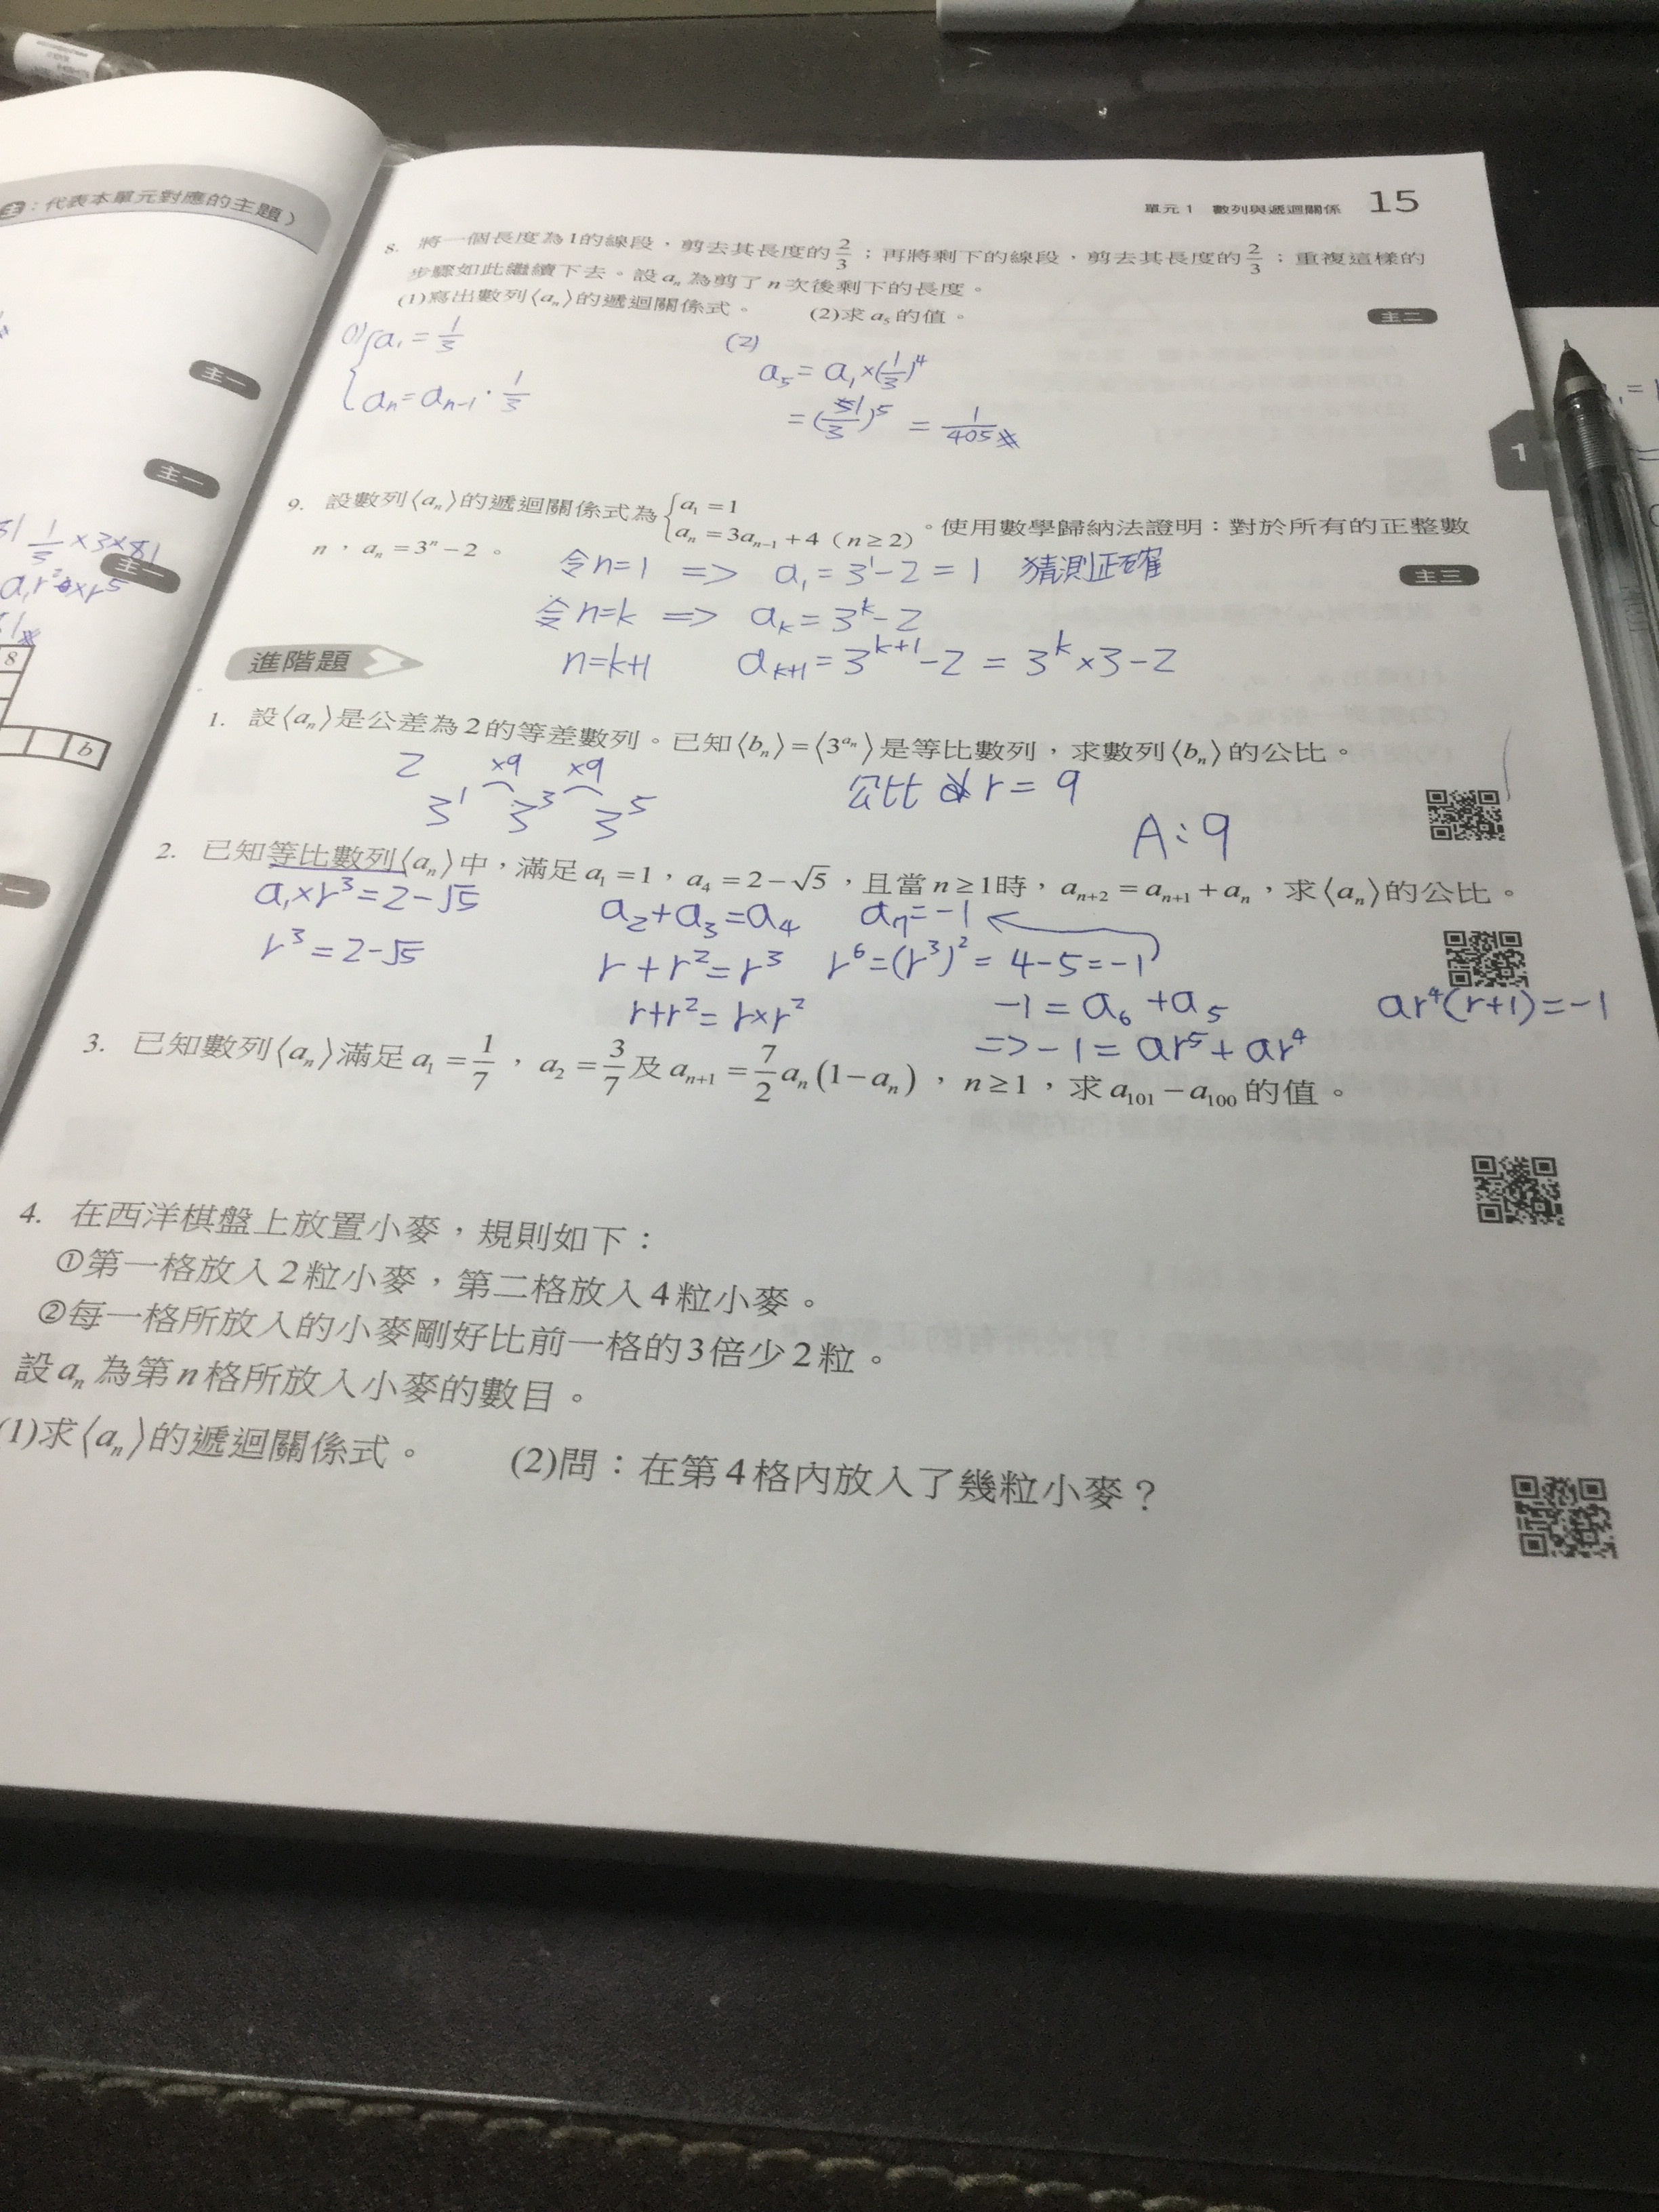 ：代表本單元對應的主題）
主一
主一
主一
8
b
單元1 數列與遞迴關係 15
8. 將一個長度為1的線段，剪去其長度的2/3；再將剩下的線段，剪去其長度的2/3；重複這樣的
步驟如此繼續下去。設aₙ為剪了n次後剩下的長度。
(1)寫出數列⟨aₙ⟩的遞迴關係式。 (2)求a₅的值。
主二
(1) { a₁ = 1/3
aₙ = aₙ₋₁ · 1/3
(2)
a₅ = a₁ × (1/3)⁴
= (1/3)⁵ = 1/405
1
9. 設數列⟨aₙ⟩的遞迴關係式為 { a₁ = 1
aₙ = 3aₙ₋₁ + 4 (n ≥ 2) 。使用數學歸納法證明：對於所有的正整數
n，aₙ = 3ⁿ − 2。
主三
令n=1 => a₁ = 3¹ − 2 = 1 猜測正確
令n=k => aₖ = 3ᵏ − 2
n=k+1 aₖ₊₁ = 3ᵏ⁺¹ − 2 = 3ᵏ × 3 − 2
進階題
1. 設⟨aₙ⟩是公差為2的等差數列。已知⟨bₙ⟩ = ⟨3^(aₙ)⟩是等比數列，求數列⟨bₙ⟩的公比。
2 ×9 ×9
3¹ 3³ 3⁵
公比 r = 9
A：9
2. 已知等比數列⟨aₙ⟩中，滿足a₁ = 1，a₄ = 2 − √5，且當n ≥ 1時，aₙ₊₂ = aₙ₊₁ + aₙ，求⟨aₙ⟩的公比。
a₁×r³ = 2 − √5 a₂ + a₃ = a₄ a₇ = −1
r³ = 2 − √5 r + r² = r³ r⁶ = (r³)² = 4 − 5 = −1
r + r² = r × r² −1 = a₆ + a₅ ar⁴(r+1) = −1
=> −1 = ar⁵ + ar⁴
3. 已知數列⟨aₙ⟩滿足a₁ = 1/7，a₂ = 3/7及aₙ₊₁ = 7/2 aₙ(1 − aₙ)，n ≥ 1，求a₁₀₁ − a₁₀₀的值。
4. 在西洋棋盤上放置小麥，規則如下：
①第一格放入2粒小麥，第二格放入4粒小麥。
②每一格所放入的小麥剛好比前一格的3倍少2粒。
設aₙ為第n格所放入小麥的數目。
(1)求⟨aₙ⟩的遞迴關係式。 (2)問：在第4格內放入了幾粒小麥？